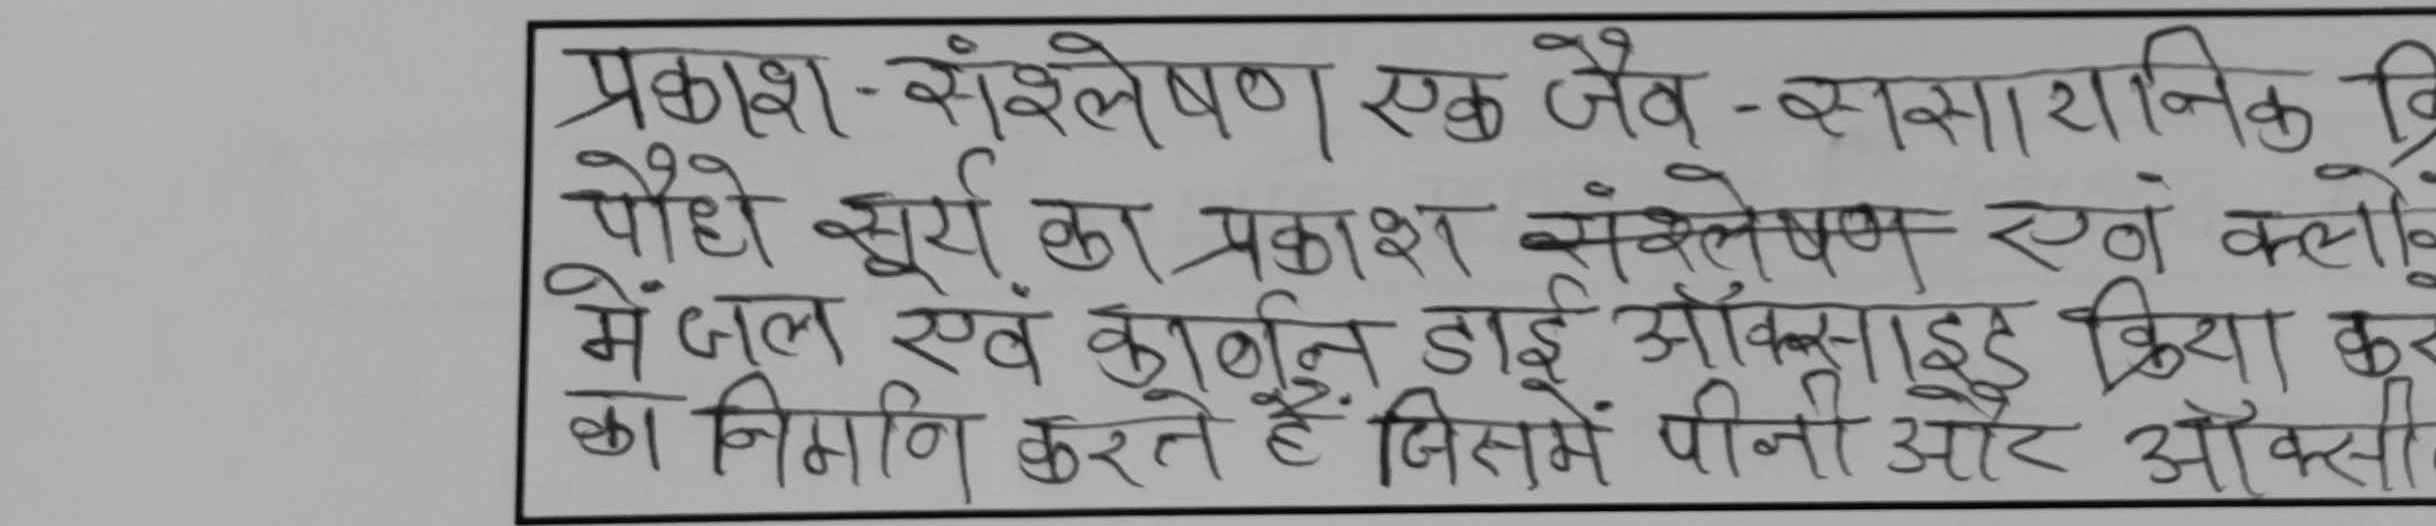 प्रकाश-संश्लेषण एक जैव-रासायनिक
पौधे सूर्य का प्रकाश संश्लेषण एवं
में जल एवं कार्बन डाई ऑक्साइड क्रिया
का निर्माण करते हैं जिसमें और